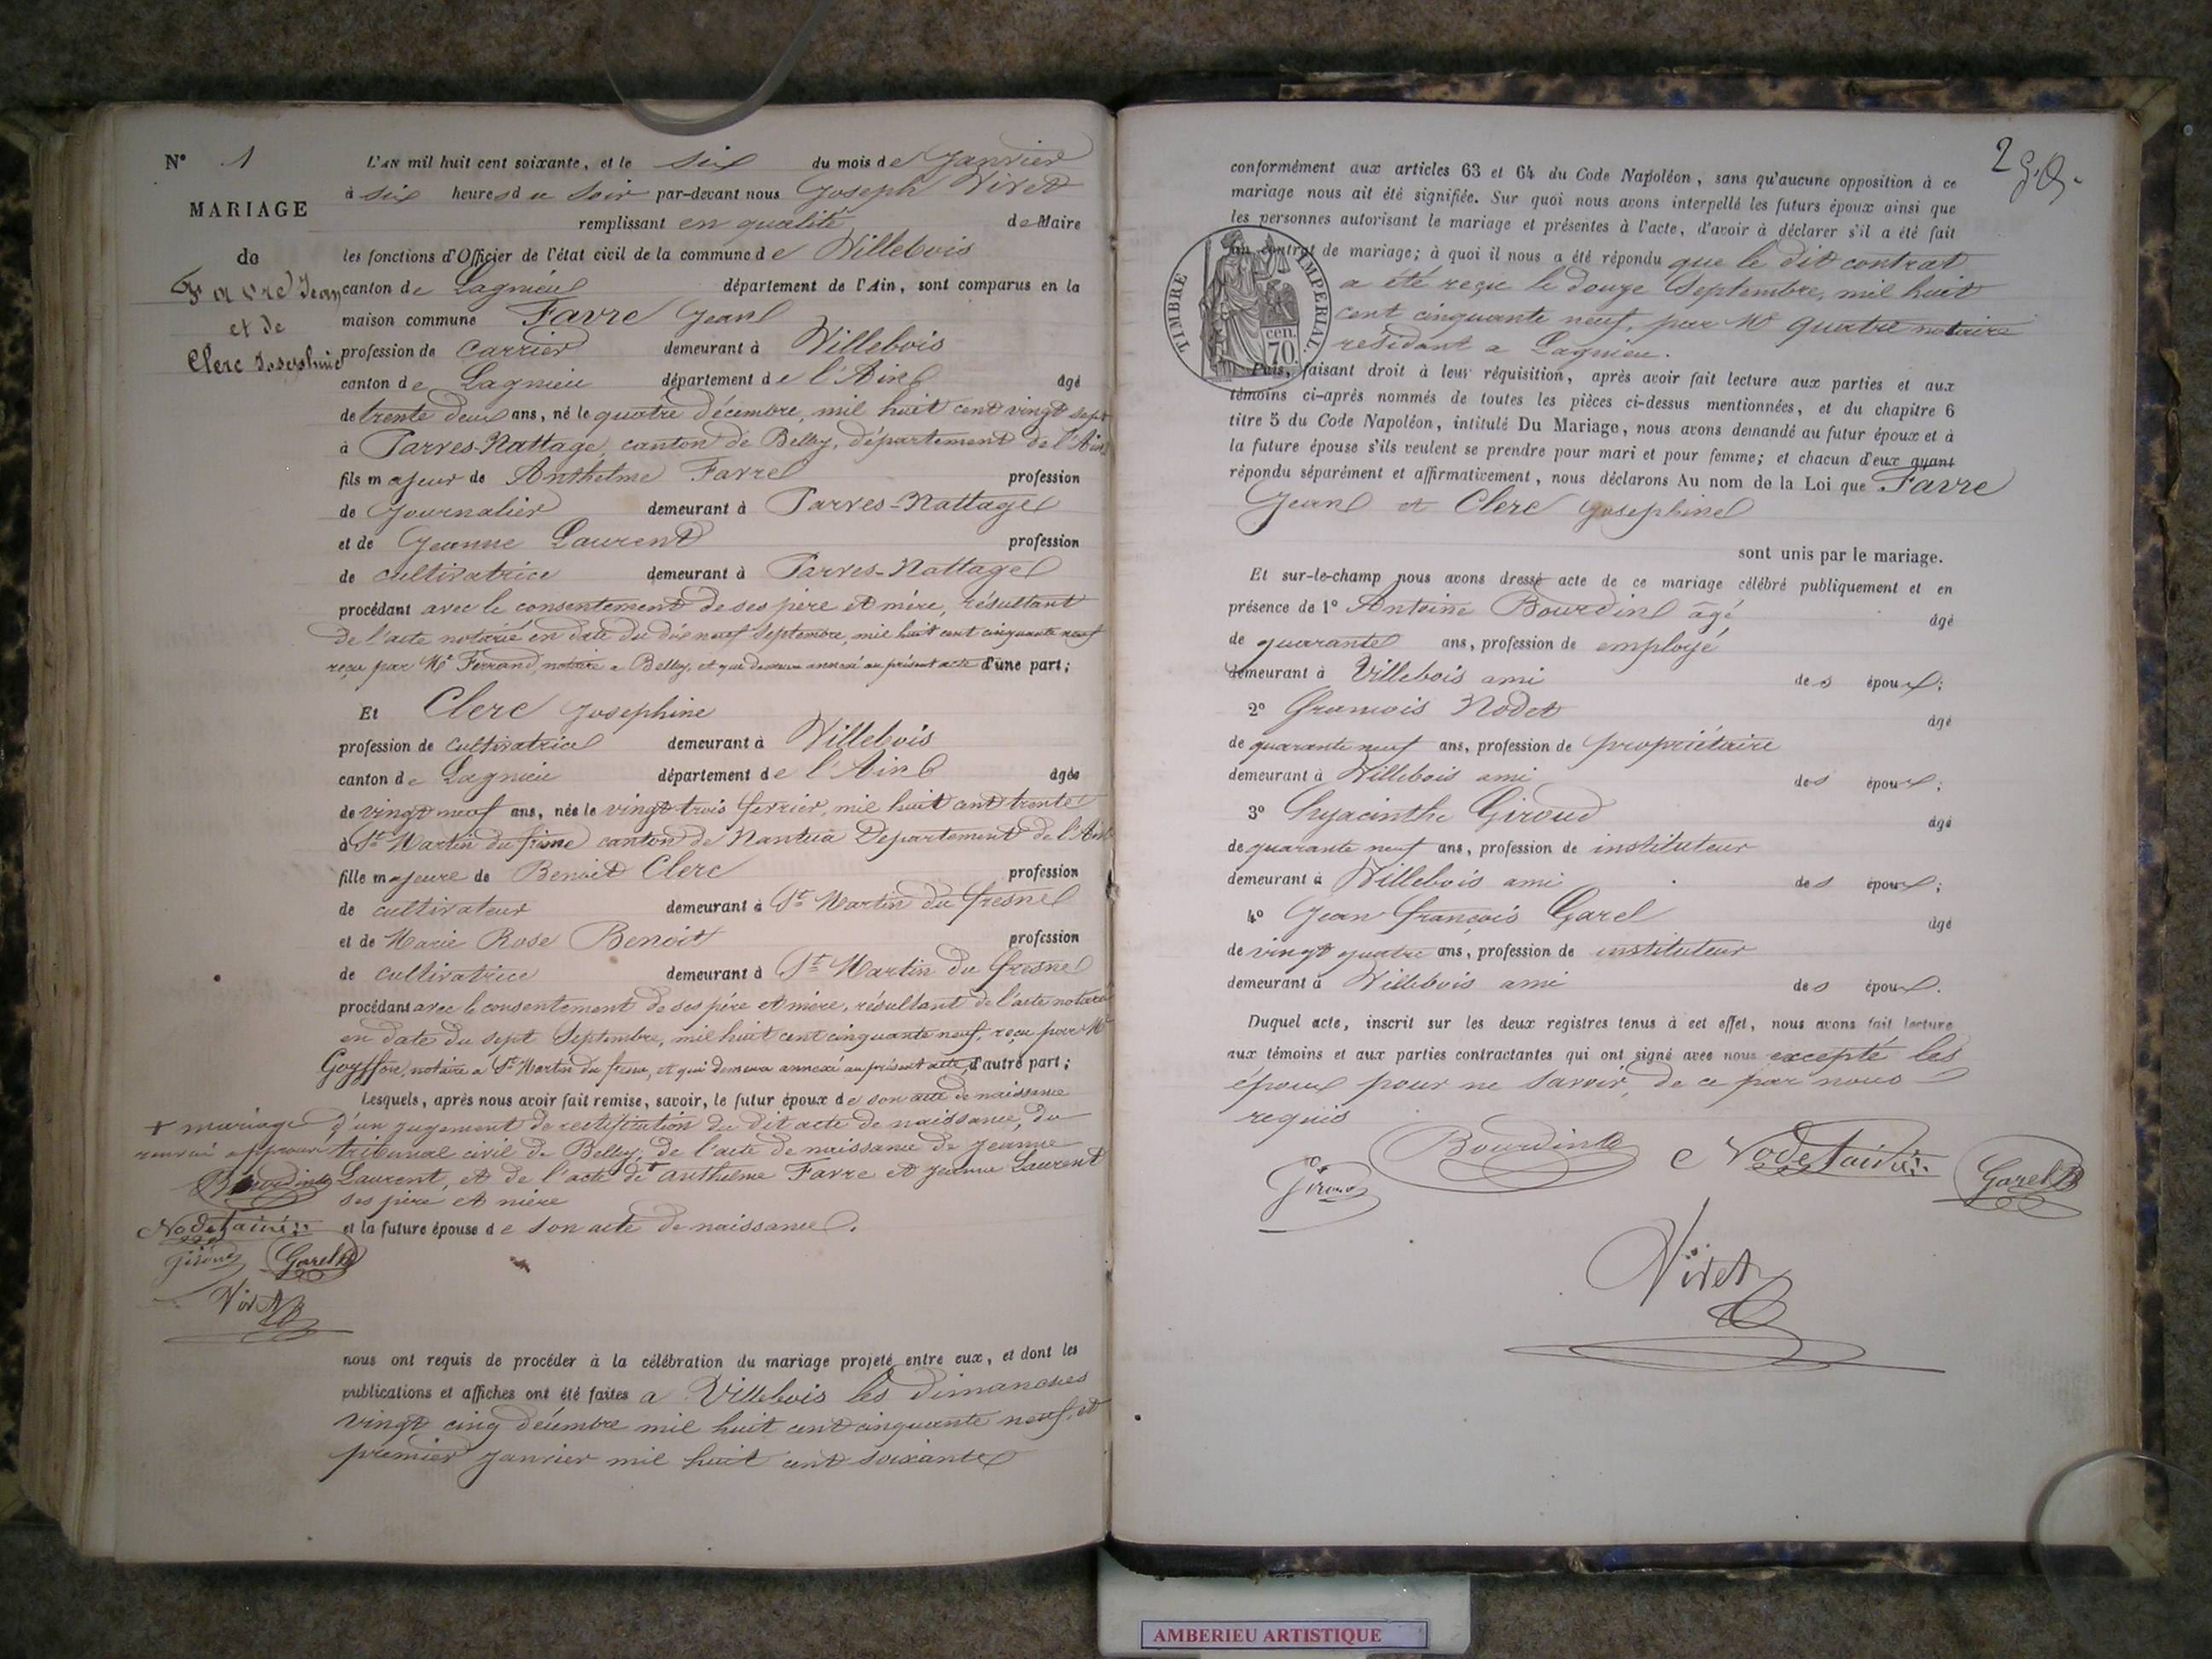 N° 1
MARIAGE
de
Favre Jean
et de
Clerc Josephine
L'AN mil huit cent soixante, et le six du mois de Janvier
à six heures du soir par-devant nous Joseph Vivet
remplissant en qualité de Maire
les fonctions d'Officier de l'état civil de la commune de Villebois
canton de Lagnieu département de l'Ain, sont comparus en la
maison commune Favre Jean
profession de Carrier demeurant à Villebois
canton de Lagnieu département de l'Ain âgé
de trente deux ans, né le quatre décembre, mil huit cent vingt sept
à Parves-Nattage, canton de Belley, département de l'Ain
fils majeur de Anthelme Favre profession
de Journalier demeurant à Parves-Nattage
et de Jeanne Laurent profession
de cultivatrice demeurant à Parves-Nattage
procédant avec le consentement de ses père et mère, résultant
de l'acte notarié en date du dix neuf septembre, mil huit cent cinquante neuf
reçu par Me Ferrand, notaire a Belley, et qui demeure annexé au présent acte d'une part;
Et Clerc Josephine
profession de cultivatrice demeurant à Villebois
canton de Lagnieu département de l'Ain âgée
de vingt neuf ans, née le vingt trois fevrier, mil huit cent trente
à St Martin du frène canton de Nantua Departement de l'Ain
fille majeure de Benoit Clerc profession
de cultivateur demeurant à St Martin du fresne
et de Marie Rose Benoit profession
de cultivatrice demeurant à St Martin du fresne
procédant avec le consentement de ses père et mère, résultant de l'acte notarié
en date du sept Septembre, mil huit cent cinquante neuf, reçu par Me
Goyffon, notaire a St Martin du frene, et qui demeure annexé au présent acte, d'autre part;
Lesquels, après nous avoir fait remise, savoir, le futur époux de son acte de naissance
d'un jugement de rectification du dit acte de naissance, du
tribunal civil de Belley, de l'acte de naissance de Jeanne
Laurent, et de l'acte de + Anthelme Favre et Jeanne Laurent
ses père et mère
et la future épouse de son acte de naissance.
+ mariage
renvoi approuvé
Bourdin
Nodet
Giroud Garel
Vivet
nous ont requis de procéder à la célébration du mariage projeté entre eux, et dont les
publications et affiches ont été faites a Villebois les dimanches
vingt cinq décembre mil huit cent cinquante neuf, et
premier janvier mil huit cent soixante
2
conformément aux articles 63 et 64 du Code Napoléon, sans qu'aucune opposition à ce
mariage nous ait été signifiée. Sur quoi nous avons interpellé les futurs époux ainsi que
les personnes autorisant le mariage et présentes à l'acte, d'avoir à déclarer s'il a été fait
un contrat de mariage; à quoi il nous a été répondu que le dit contrat
a été reçu le douze Septembre, mil huit
cent cinquante neuf, par Me Quatre notaire
résidant a Lagnieu.
TIMBRE IMPERIAL.
cen. 70.
Puis, faisant droit à leur réquisition, après avoir fait lecture aux parties et aux
témoins ci-après nommés de toutes les pièces ci-dessus mentionnées, et du chapitre 6
titre 5 du Code Napoléon, intitulé Du Mariage, nous avons demandé au futur époux et à
la future épouse s'ils veulent se prendre pour mari et pour femme; et chacun d'eux ayant
répondu séparément et affirmativement, nous déclarons Au nom de la Loi que Favre
Jean et Clerc Josephine
sont unis par le mariage.
Et sur-le-champ nous avons dressé acte de ce mariage célébré publiquement et en
présence de 1° Antoine Bourdin âgé âgé
de quarante ans, profession de employé
demeurant à Villebois ami des époux;
2° François Nodet âgé
de quarante neuf ans, profession de propriétaire
demeurant à Villebois ami des époux;
3° Hyacinthe Giroud âgé
de quarante neuf ans, profession de instituteur
demeurant à Villebois ami des époux;
4° Jean François Garel âgé
de vingt quatre ans, profession de instituteur
demeurant à Villebois ami des époux.
Duquel acte, inscrit sur les deux registres tenus à cet effet, nous avons fait lecture
aux témoins et aux parties contractantes qui ont signé avec nous excepté les
époux pour ne savoir, de ce par nous
requis
Bourdin
Nodet
Giroud
Garel
Vivet
AMBERIEU ARTISTIQUE